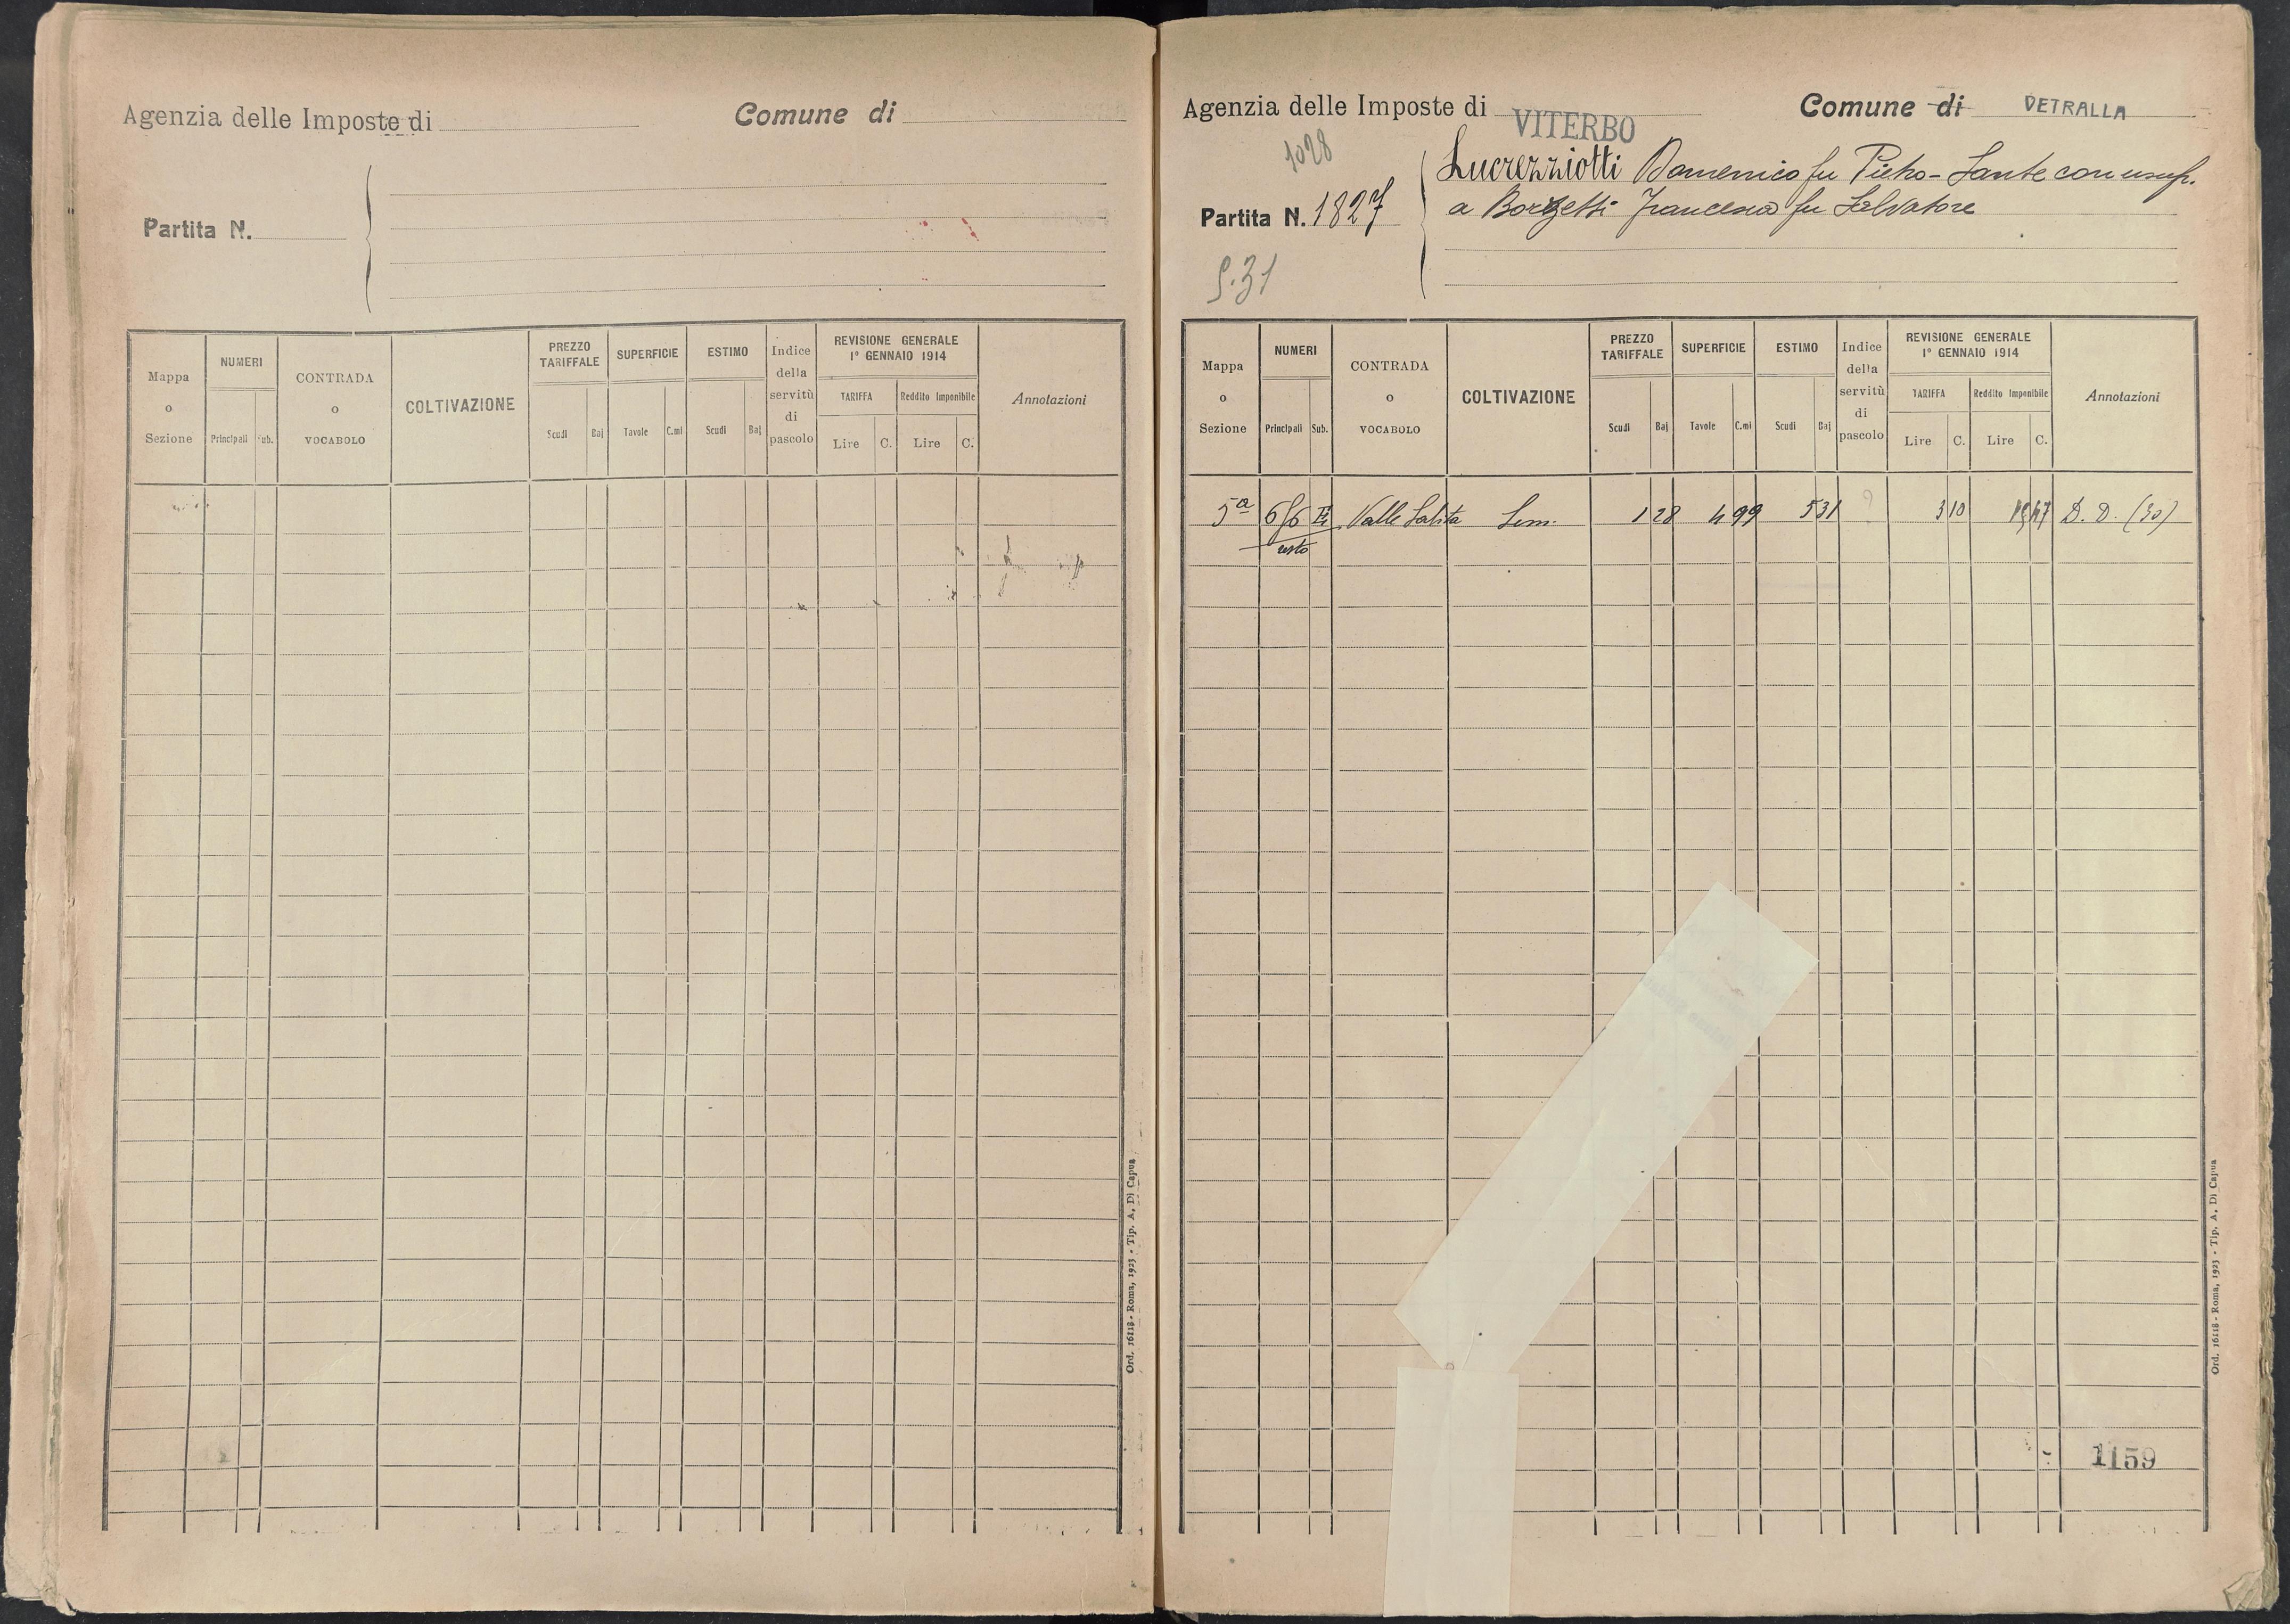 Agenzia delle Imposte di
Comune di
Partita N.
Mappa o Sezione
NUMERI
Principali
Sub.
CONTRADA o VOCABOLO
COLTIVAZIONE
PREZZO TARIFFALE
Scudi
Baj
SUPERFICIE
Tavole
C.mi
ESTIMO
Scudi
Baj
Indice della servitù di pascolo
REVISIONE GENERALE
1° GENNAIO 1914
TARIFFA
Lire
C.
Reddito Imponibile
Lire
C.
Annotazioni
Ord. 16118 - Roma, 1923 - Tip. A. Di Capua
Agenzia delle Imposte di VITERBO
Comune di VETRALLA
1028
Partita N. 1827
Lucrezziotti Domenico fu Pietro-Sante con usuf.
a Borzetti Francesca fu Salvatore
S.31
Mappa o Sezione
NUMERI
Principali
Sub.
CONTRADA o VOCABOLO
COLTIVAZIONE
PREZZO TARIFFALE
Scudi
Baj
SUPERFICIE
Tavole
C.mi
ESTIMO
Scudi
Baj
Indice della servitù di pascolo
REVISIONE GENERALE
1° GENNAIO 1914
TARIFFA
Lire
C.
Reddito Imponibile
Lire
C.
Annotazioni
5a Valle Salita Sem. 1 28 4 99 5 31 3 10 D. D. (30)
resto
1159
Ord. 16118 - Roma, 1923 - Tip. A. Di Capua